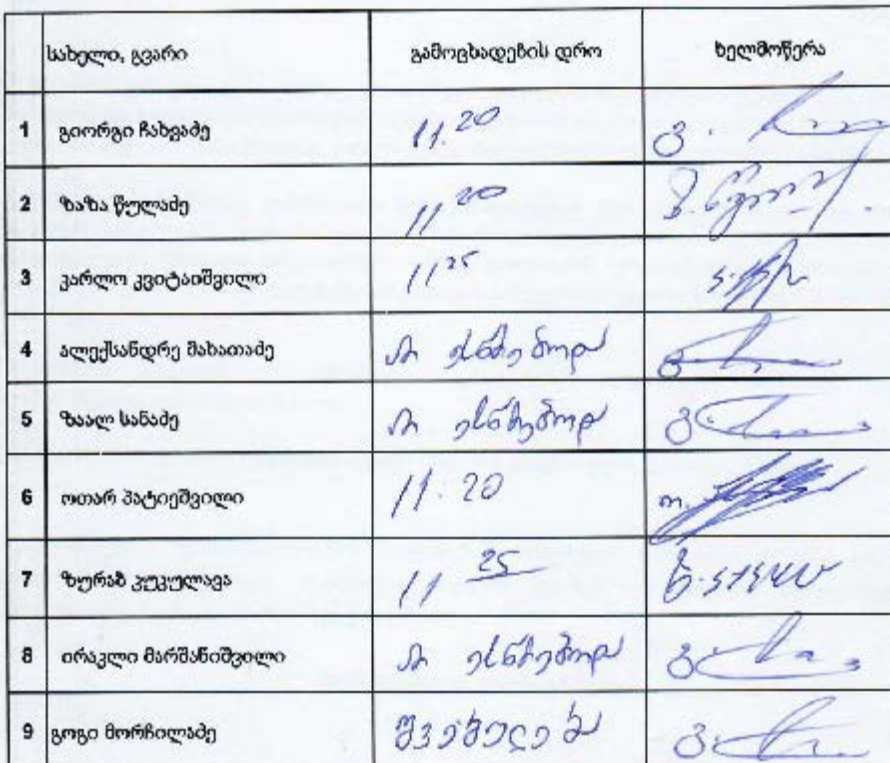 სახელი, გვარი გამოცხადების დრო ხელმოწერა
1 გიორგი ჩახვაძე 11.20
2 ზაზა წულაძე 11 20
3 კარლო კვიტაიშვილი 11 25
4 ალექსანდრე მახათაძე არ ესწრებოდა
5 ზაალ სანაძე არ ესწრებოდა
6 ოთარ პატიეშვილი 11.20
7 ზურაბ კუკულავა 11 25
8 ირაკლი მარშანიშვილი არ ესწრებოდა
9 გოგი მორჩილაძე შვებულება